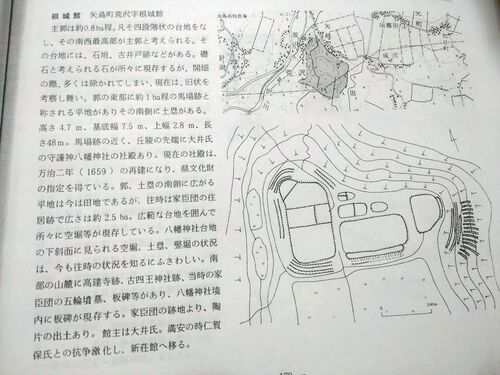 根城館　矢島町荒沢字根城館
主郭は約0.8ha程。凡そ四段階状の台地をな
し、その南西最高部が主郭と考えられる。そ
の台地には、石垣、古井戸跡などがある。礎
石と考えられる石が所々に現存するが、開畑
の際、多くは除かれてしまい、現在は、旧状を
考察し難い。郭の東部に約1ha程の馬場跡と
称される平地がありその南側に土塁がある。
高さ4.7m、基底幅7.5m、上幅2.8m、長
さ48m。馬場跡の近く、丘陵の先端に大井氏
の守護神八幡神社の社殿あり。現在の社殿は、
万治二年（1659）の再建になり、県文化財
の指定を得ている。郭、土塁の南側に広がる
平地は今は旧地であるが、往時は家臣団の住
居跡で広さは約2.5ha。広範な台地を囲んで
所々に空堀等が現存している。八幡神社台地
の下斜面に見られる空堀、土塁、竪堀の状況
は、今も往時の状況を知るにふさわしい。南
部の山麓に高建寺跡、古四王神社跡、当時の家
臣団の五輪墳墓、板碑等があり、八幡神社境
内に板碑が現存する。家臣団の跡地より、陶
片の出土あり。館主は大井氏。満安の時仁賀
保氏との抗争激化し、新荘館へ移る。
矢島高校農場
荒
沢
100m